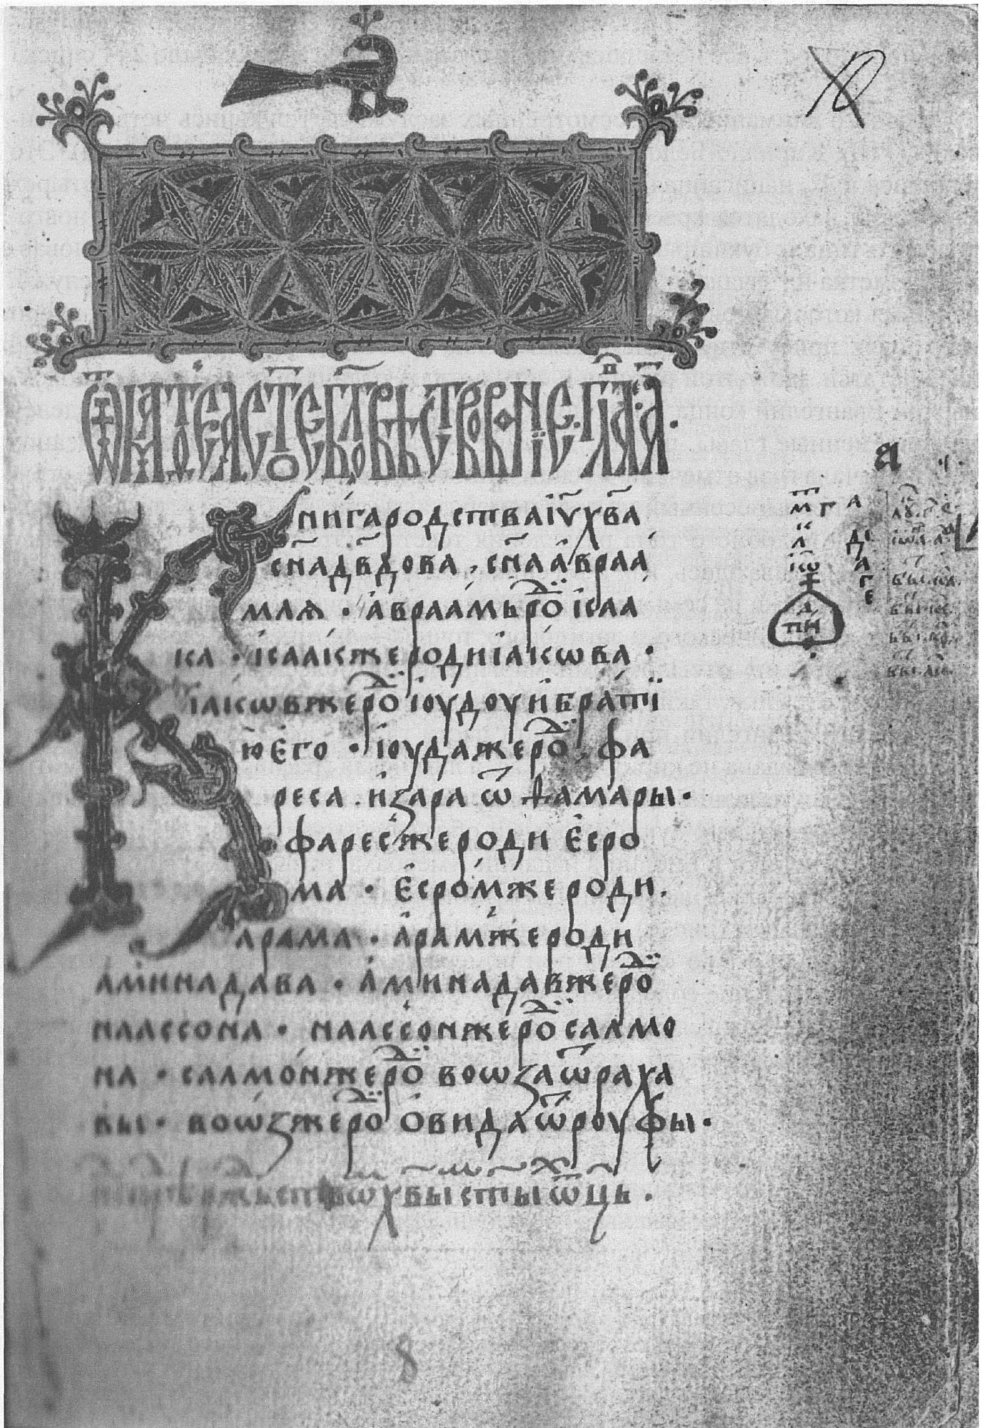 ѿ маѳеа ст҃ое бл҃говѣствовꙋⷩ҇їе. глⷡ҇а. а҃.
Книга родства іѵ҃ хв҃а
сн҃а дв҃дова, сн҃а авраа
млѧ · авраамъ роⷣ ісаа
ка · ісаак же роди іакѡва ·
іакѡв же роⷣ іоудоу и братї
ю его · іоуда же роⷣ фа
реса. и зара ѿ ѳамары ·
фарес же роди есро
ма · есром же роди.
арама · арам же роди
аминадава · аминадав же роⷣ
наассона · наассон же роⷣ салмо
на · салмон же роⷣ вооза ѿ раха
вы · воѡз же роⷣ овида ѿ роуфы ·
а
8